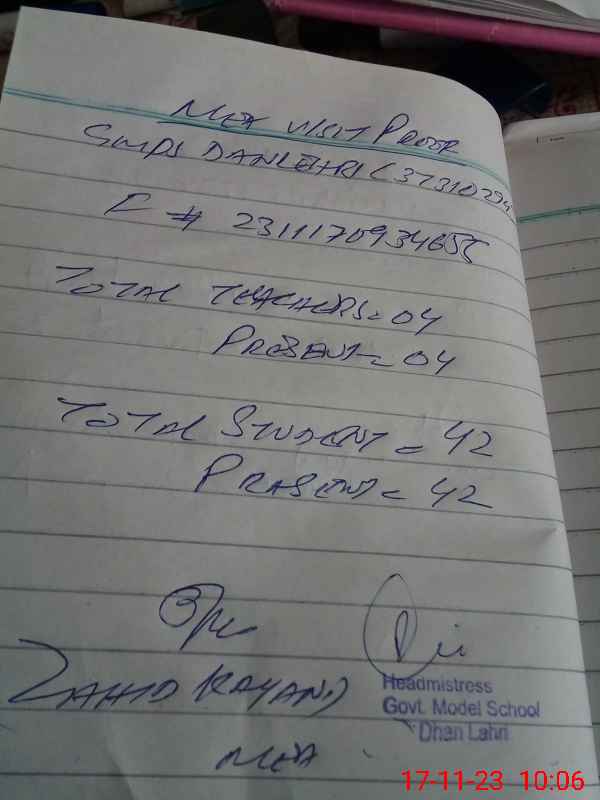 MEA VISIT PROOF
GMPS DANLEHRI (37310294
C # 23111170934655
TOTAL TEACHERS = 04
PRESENT = 04
TOTAL STUDENT = 42
PRESENT = 42
ZAHID KAYANI
MEA
Headmistress
Govt. Model School
Dhan Lahri
17-11-23 10:06